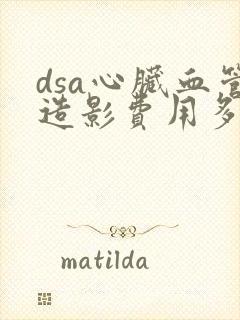 dsa心臟血管
造影費用多
matilda